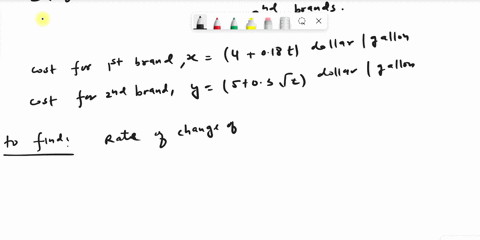 2nd brands.
cost for 1st brand, x = (4 + 0.18 t) dollar / gallon
cost for 2nd brand, y = (5 + 0.3 √t) dollar / gallon
to find: Rate of change of